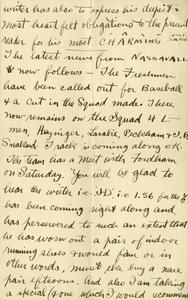 writer has also to express his deepest &
most heart felt obligations to the present
reader for his most CHARMING POST CARD.
The latest news from NASSAVALL
& now follows — The Freshmen
have been called out for Baseball
& a cut in the Squad made. There
now remains on the Squad 4 L-
men,
Track is coming along OK.
The team has a meet with Fordham
on Saturday. You will be glad to
hear the writer i.e. did i.e. 1.56 for the ½
has been coming right along and
has persevered to such an extent that
he has worn out a pair of indoor
running shoes & would fain or in
other words, must use buy a new
pair eftsoons. And also I am taking
a special which I would recomm